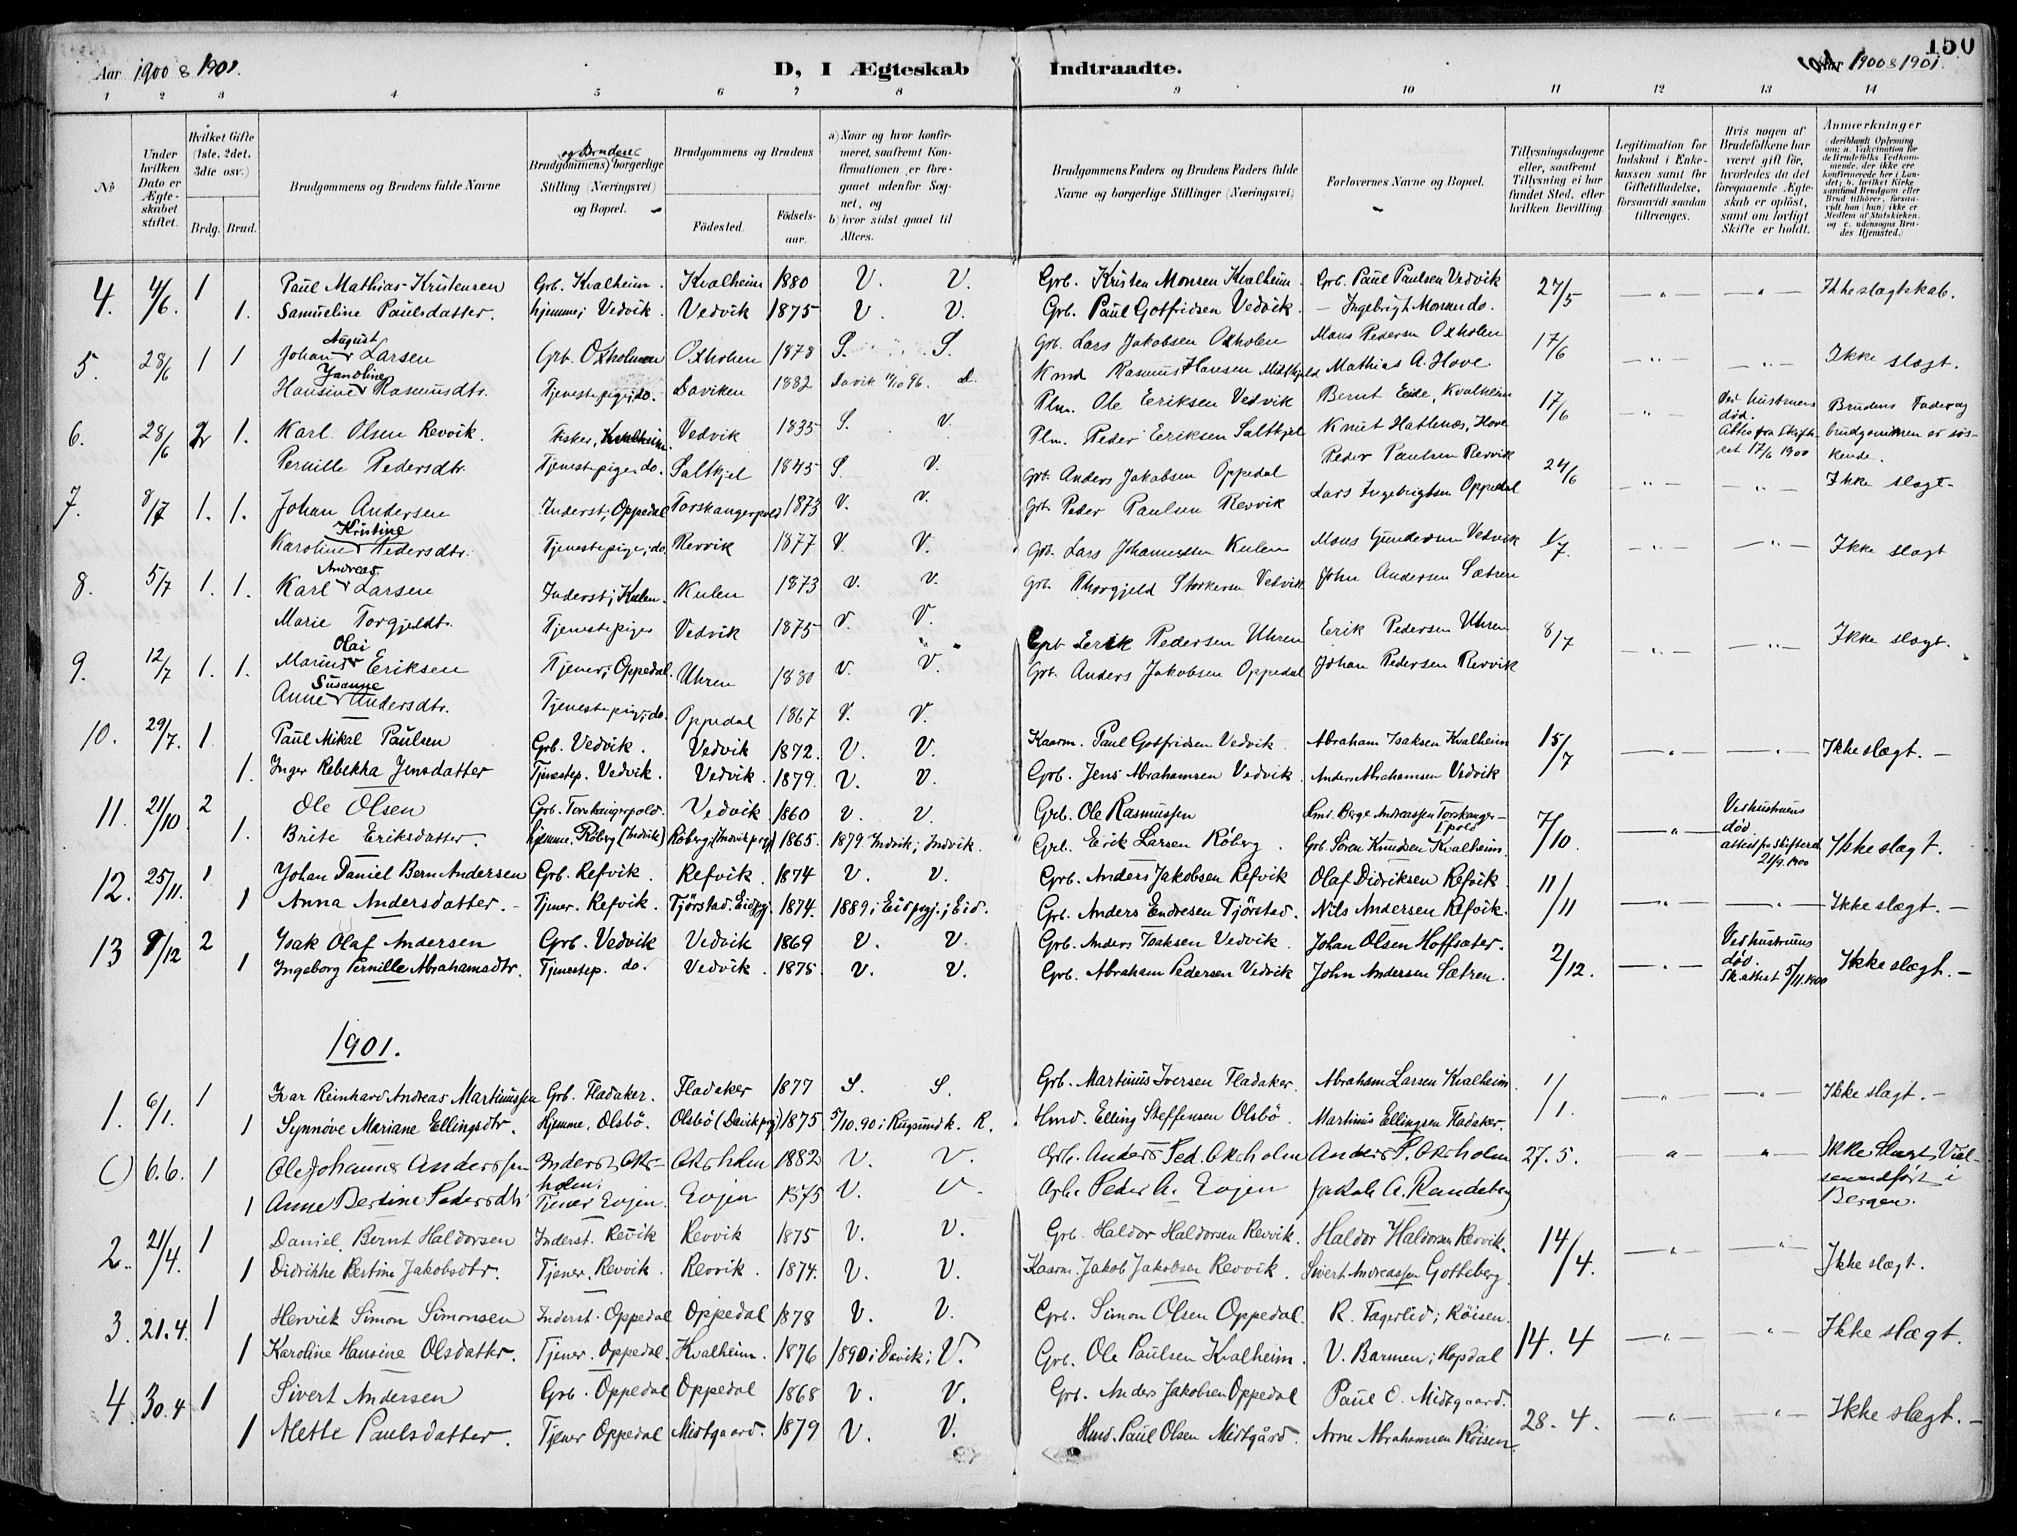 Aar 1900 & 1901.
D, I Ægteskab Indtraadte.
Aar 1900 & 1901.
150
1 2 3 4 5 6 7 8 9 10 11 12 13 14
No
Under hvilken Dato er Ægteskabet stiftet.
Hvilket Gifte (1ste, 2det, 3die osv.)
Brdg. Brud.
Brudgommens og Brudens fulde Navne
Brudgommens og Brudens borgerlige Stilling (Næringsvei) og Bopæl.
Brudgommens og Brudens
Fødested. Fødselsaar.
a) Naar og hvor konfirmeret, saafremt Konfirmationen er foregaaet udenfor Sognet, og
b) hvor sidst gaaet til Alters.
Brudgommens Faders og Brudens Faders fulde Navne og borgerlige Stillinger (Næringsvei)
Forlovernes Navne og Bopæl.
Tillysningsdagene eller, saafremt Tillysning ei har fundet Sted, efter hvilken Bevilling.
Legitimation for Indskud i Enkekassen samt for Giftetilladelse, forsaavidt saadan tiltrænges.
Hvis nogen af Brudefolkene har været gift før, hvorledes da det foregaaende Ægteskab er opløst, samt om lovligt Skifte er holdt.
Anmærkninger
(deriblandt Oplysning om: a. Vakcination for de Brudefolks Vedkommende, der ikke ere konfirmerede her i Landet; b. hvilket Kirkesamfund Brudgom eller Brud tilhører, forsaavidt han (hun) ikke er Medlem af Statskirken, og c. udensogns Brudes Hjemsted.)
4. 4/6. 1 Paul Mathias Kristensen Grb. Kvalheim. Kvalheim 1880 V. V. Grb. Kristen Monsen Kvalheim. Grb. Paul Paulsen Vedvik 27/5 — „ — — „ — Ikke slægtskab.
1. Samueline Paulsdatter. hjemme; Vedvik. Vedvik 1875 V. V. Grb. Paul Gotfridsen Vedvik. — Ingebrigt Monsen do.
5. 28/6 1 1 Johan August Larsen Grb. Oxholmen Oxholmen 1878 S. S. Grb. Lars Jakobsen Oxholen Mons Pedersen Oxholen 17/6 — „ — „ Ikke slægt.
Hansine Jandline Rasmusdtr. Tjenestepige, do. Daviken 1882 Davik 11/10 96. d. Kmd Rasmus Hansen Midtkjeld Mathias A. Hove
6. 28/6 2 1. Karl Olsen Revvik. Fisker, Kvalheim Vedvik 1835 S. V. Plm. Ole Eriksen Vedvik Bernt Eide, Kvalheim 17/6 — „ — Ved hustruens død. Attest fra Skifteret 17/6 1900 Brudens Fader og brudgommen er søskende.
Pernille Pedersdtr. Tjenestepige do. Saltkjel 1845 S V. Plm. Peder Eriksen Saltkjel Knut Hatlenæs, Hove
7. 8/7 1. 1. Johan Andersen Inderst; Oppedal Torskangerpold 1873 V. V. Grb. Anders Jakobsen Oppedal Peder Paulsen Revvik 24/6 — „ — — „ — Ikke slægt.
Karoline Kristine Pedersdtr. Tjenestepige, do Revvik 1877 V. V. Grb. Peder Paulsen Revvik Lars Ingebrigtsen Oppedal
8. 5/7 1. 1. Karl Andreas Larsen Inderst; Kulen. Kulen 1873 V. V. Grb. Lars Johannesen Kulen Mons Gundersen Vedvik 1/7. — „ — — „ — Ikke slægt
Marie Torgjeldt. Tjenestepige Vedvik 1875 V. V. Grb. Thorgjeld Storkersen Vedvik John Andersen Sætren
9. 12/7 1. 1. Marius Olai Eriksen Tjener; Oppedal. Uhren 1880 V. V. Grb Eerik Pedersen Uhren Erik Pedersen Uhren 8/7 — „ — — „ — Ikke slægt.
Anne Susanne Andersdtr. Tjenestepig; do. Oppedal 1867 V. V. Grb. Anders Jakobsen Oppedal Johan Pedersen Revvik
10. 29/7. 1. Paul Mikal Paulsen Grb. Vedvik. Vedvik 1872. V. V. Kaarm. Paul Gotfridsen Vedvik. Abraham Isaksen Kvalheim 15/7 — „ — — „ — Ikke slægt. —
1. Inger Rebekka Jensdatter Tjenestep. Vedvik. Vedvik. 1879. V. V. Grb. Jens Abrahamsen Vedvik Anders Abrahamsen Vedvik
11. 21/10 2 Ole Olsen Grb. Torskangerpold. Vedvik 1860 V. V. Grb. Ole Rasmussen Smd. Berge Andreassen Torskangerpold 7/10. — „ — Ved hustruens død attest fra Skifteret 21/9 1900 Ikke slægt.
1. Brite Eriksdatter. hjemme. Røberg (Indvik) Røberg; Indvik prgj. 1865. 1879 Indvik; Indvik. Grb. Erik Larsen Røberg. Grb. Søren Knudsen Kvalheim.
12. 25/11. 1 Johan Daniel Bern Andersen Grb. Refvik. Refvik. 1874 V. V. Grb. Anders Jakobsen Refvik Olaf Didriksen Refvik. 11/11 — „ — — „ — Ikke slægt. —
1 Anna Andersdatter. Tjener. Refvik. Tjørstad. Eidprgj. 1874. 1889; Eidprgj.; Eid. Grb. Anders Endresen Tjørstad. Nils Andersen Refvik.
13 9/12 2 Isak Olaf Andersen Grb. Vedvik Vedvik 1869 V. V. Grb. Anders Isaksen Vedvik. Johan Olsen Hoffsæter. 2/12. — „ — Ved hustruens død. Sk. attest 5/11.1900 Ikke slægt. —
1 Ingeborg Pernille Abrahamsdtr. Tjenestep. do. Vedvik. 1875 V. V. Grb. Abraham Pedersen Vedvik John Andersen Sætren.
1901.
1. 6/1. 1 Ivar Reinhard Andreas Martinussen Grb. Fladaker. Fladaker 1877 S. S. Grb. Martinus Iversen Fladaker. Abraham Larsen Kvalheim. 1/1. — „ — — „ — Ikke slægt. —
1 Synnøve Mariane Ellingsdtr. Hjemme, Olsbø. Olsbø (Davik prgj) 1875 5/10.90 i Rugsund k. R. Hmd. Elling Steffensen Olsbø. Martinus Ellingsen Fladaker.
( ) 6.6. 1 Ole Johannes Anderssen Inderst, Oksholm; Oksholm 1882 V. V. Grb. Anders Ped. Oksholm Anders P. Oksholm 27. 5. „ „ Ikke Slægt, Vielsen udført i Bergen.
1 Anne Bertine Pedersdtr Tjener Evjen Evjen 1875 V. V Peder A. Evjen Jakob A. Randeberg
2. 21/4. 1 Daniel Bernt Haldorsen Inderst. Revik Revvik 1875 V. V. Grb. Haldor Haldorsen Revvik. Haldor Haldorsen Revvik. 14/4. — „ — — „ — Ikke slægt.
1 Didrikke Bertine Jakobsdtr. Tjener. Revvik. Revvik. 1874. V. V. Kaarm. Jakob Jakobsen Revvik. Sivert Andreassen Gotteberg.
3. 21.4. 1 Henrik Simon Simonsen Inderst. Oppedal Oppedal 1878 V. V. Grb. Simon Olsen Oppedal. R. Fagerlid; Røisen. 14. 4 — „ — — „ — Ikke slægt.
1 Karoline Hansine Olsdatter. Tjener. Oppedal. Kvalheim. 1876 1890; Davik; V. Grb. Ole Paulsen Kvalheim. V. Barmen; Hopdal
4. 30.4 1 Sivert Andersen Grb. Oppedal Oppedal 1868 V. V. Grb. Anders Jakobsen Oppedal Paul O. Midtgaard. 28. 4. — „ — — „ — Ikke slægt. —
1 Mette Paulsdatter. Tjener Oppedal Midtgaard. 1879 V. V. Hmd. Paul Olsen Midtgård. Arne Abrahamsen Røisen.